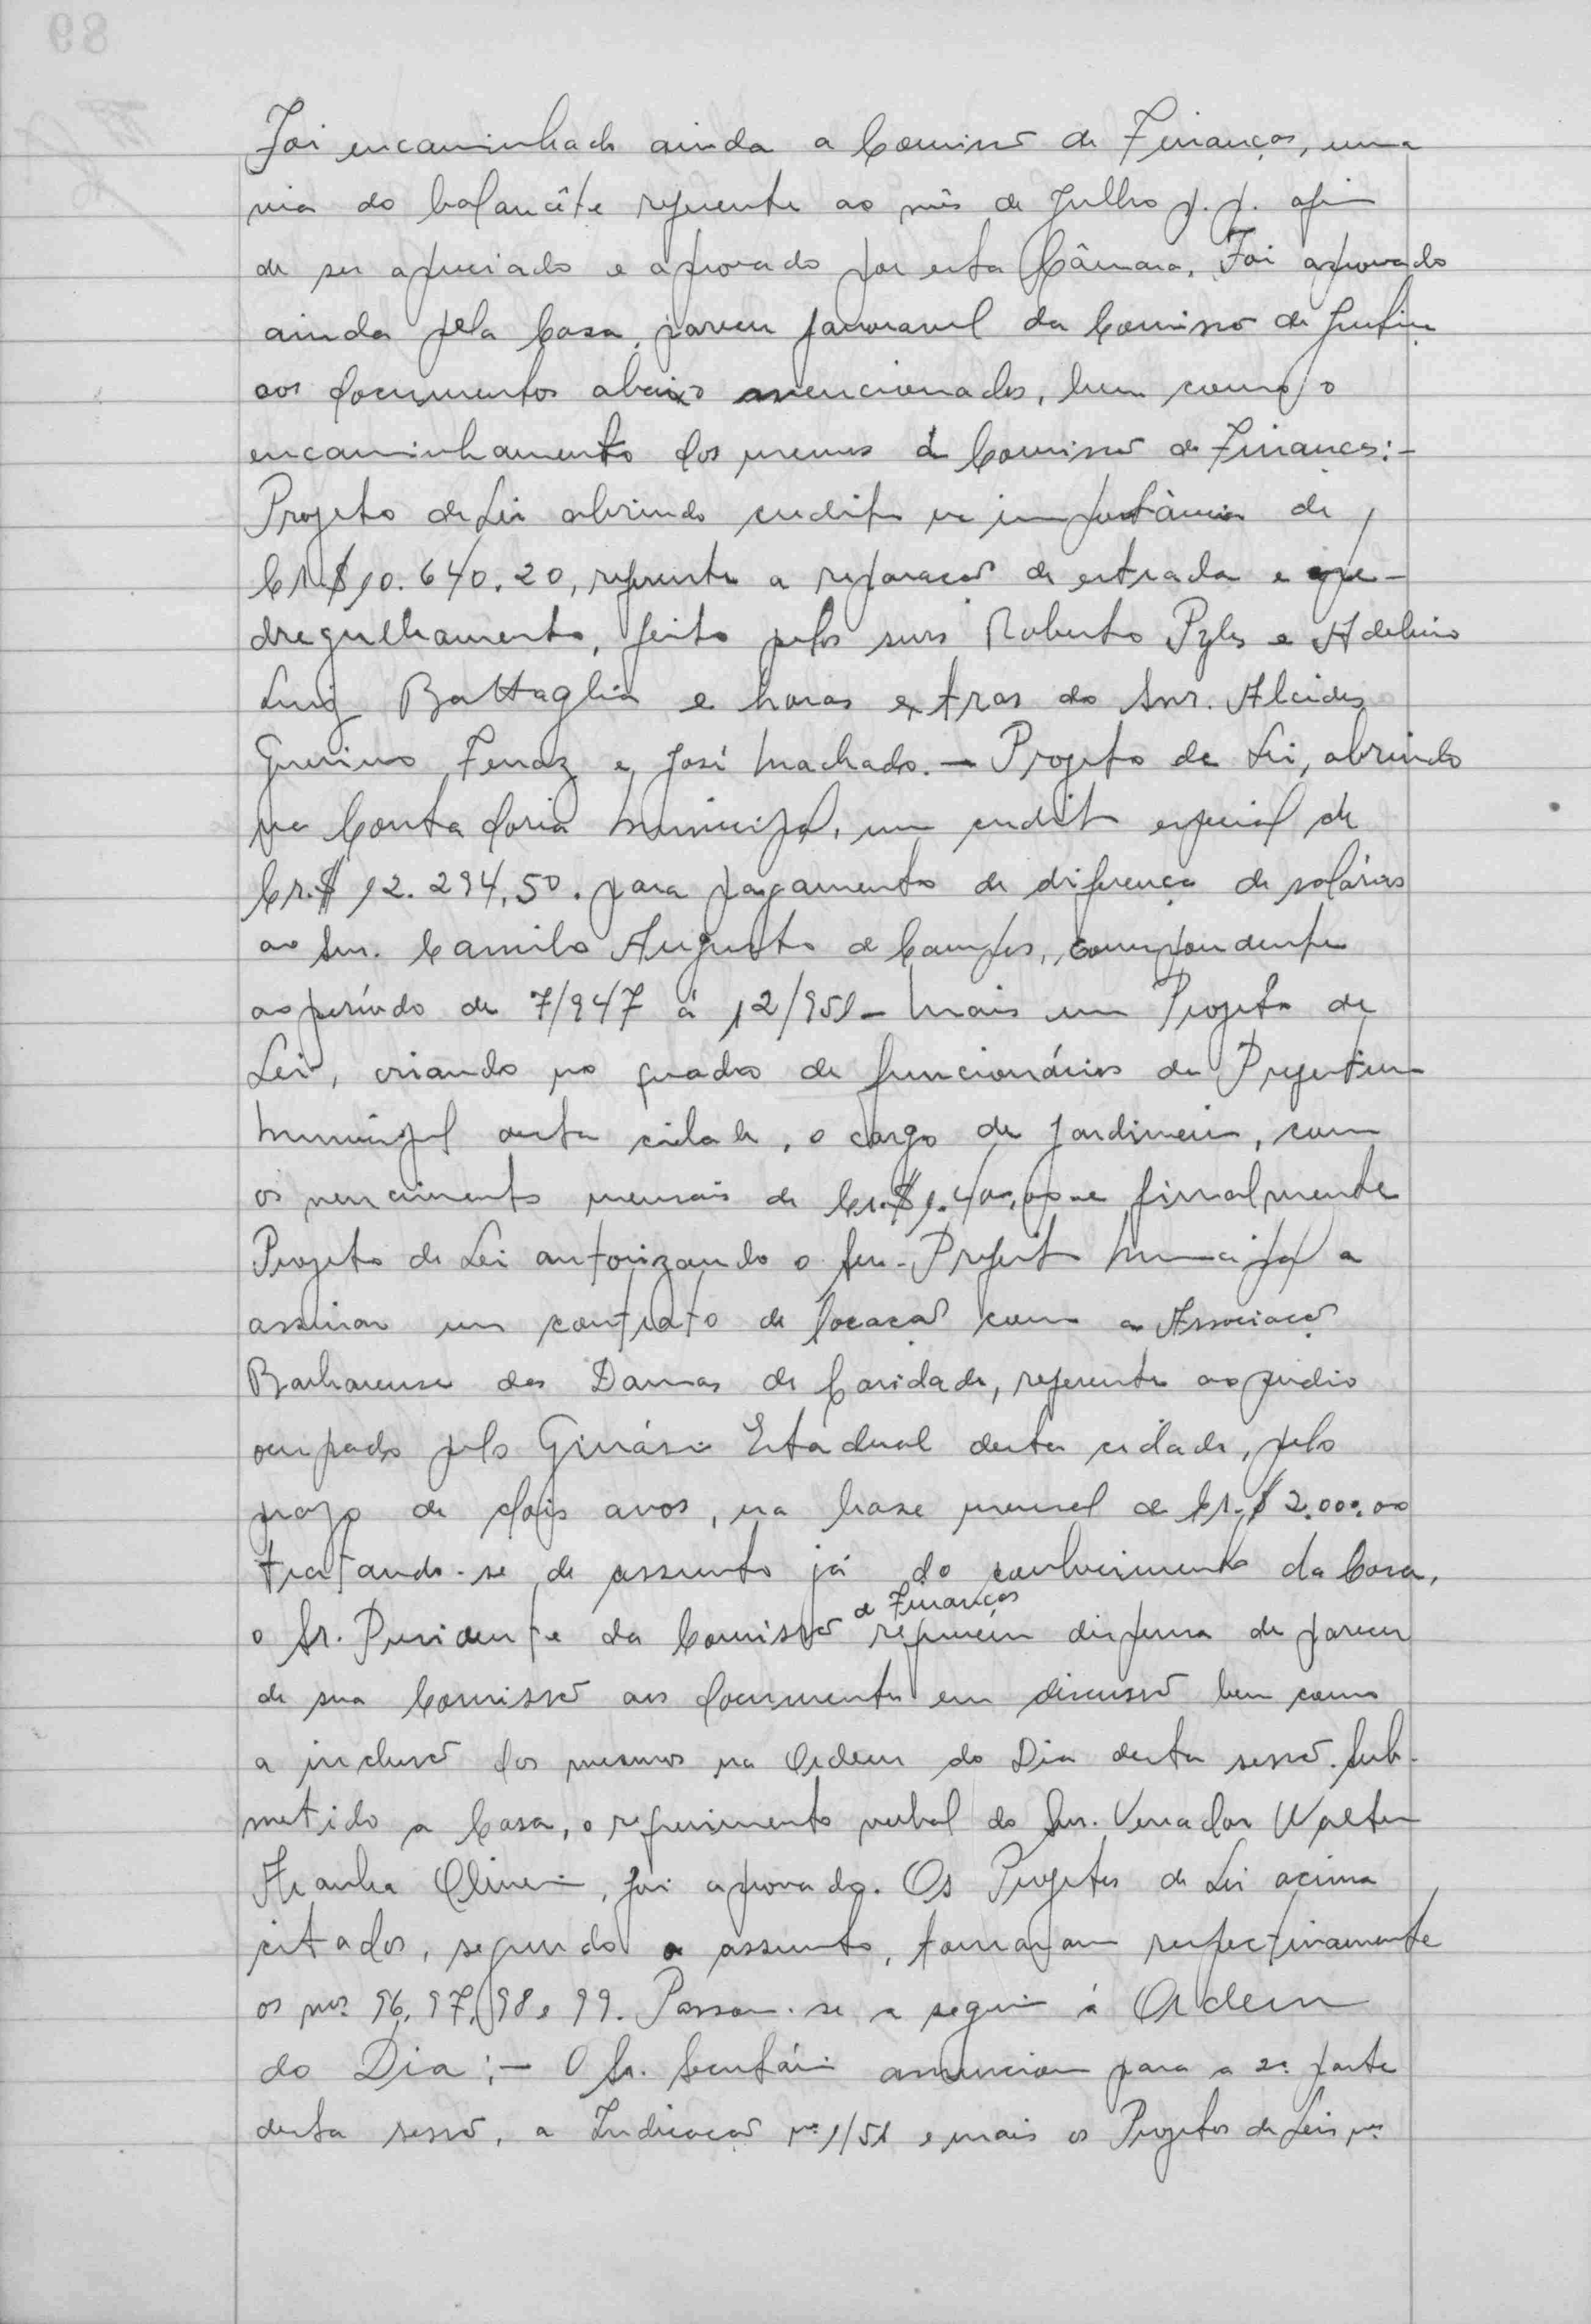 Foi encaminhado ainda a Comissão de Finanças, uma
via do balancête referente ao mês de Julho p.p. afim
de ser apreciado e aprovado por esta Câmara. Foi aprovado
ainda pela Casa, parecer favoravel da Comissão de Justiça
aos documentos abaixo mencionados, bem como o
encaminhamento dos mesmos à Comissão de Finanças:-
Projeto de Lei abrindo credito na importância de
Cr.$ 10.640.20, referente a reparação de estrada e ape-
dregulhamento, feito pelos snrs Roberto Pyles e Adelino
Luiz Battaglia e horas extras do Snr. Alcides
Guerino Ferraz e José Machado. - Projeto de Lei, abrindo
na Contadoria Municipal, um credito especial de
Cr.$ 12.294,50. para pagamento de diferença de salários
ao Snr. Camilo Augusto de Campos, correspondente
ao período de 7/947 à 12/951 - Mais um Projeto de
Lei, criando no quadro de funcionários da Prefeitura
Municipal desta cidade, o cargo de Jardineiro, com
os vencimentos mensais de Cr.$ 1.400,00 e finalmente
Projeto de Lei autorizando o Snr. Prefeito Municipal a
assinar um contrato de locação com a Associação
Barbarense das Damas de Caridade, referente ao predio
ocupado pelo Ginásio Estadual desta cidade, pelo
prazo de dois anos, na base mensal de Cr.$ 2.000.00
tratando-se de assunto já do conhecimento da Casa,
o Sr. Presidente da Comissão de Finanças requereu dispensa de parecer
de sua Comissão aos documentos em discussão bem como
a inclusão dos mesmos na Ordem do Dia desta sessão. Sub-
metido a Casa, o requerimento verbal do Snr. Vereador Walter
Aranha Oliveira, foi aprovado. Os Projetos de Lei acima
citados, segundo o assunto, tomaram respectivamente
os nos. 96, 97, 98 e 99. Passou-se a seguir à Ordem
do Dia:- O Sr. Secretário anunciou para a 2a. parte
desta sessão, a Indicação nº 1/51 e mais os Projetos de Leis nos